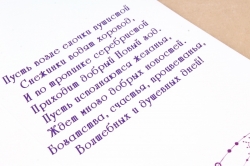 Пусть возле ёлочки пушистой
Снежинки водят хоровод,
И по тропинке серебристой
Приходит добрый Новый год.
Пусть исполняются желанья,
Ждёт много добрых новостей.
Богатства, счастья, процветанья,
Волшебных и душевных дней!